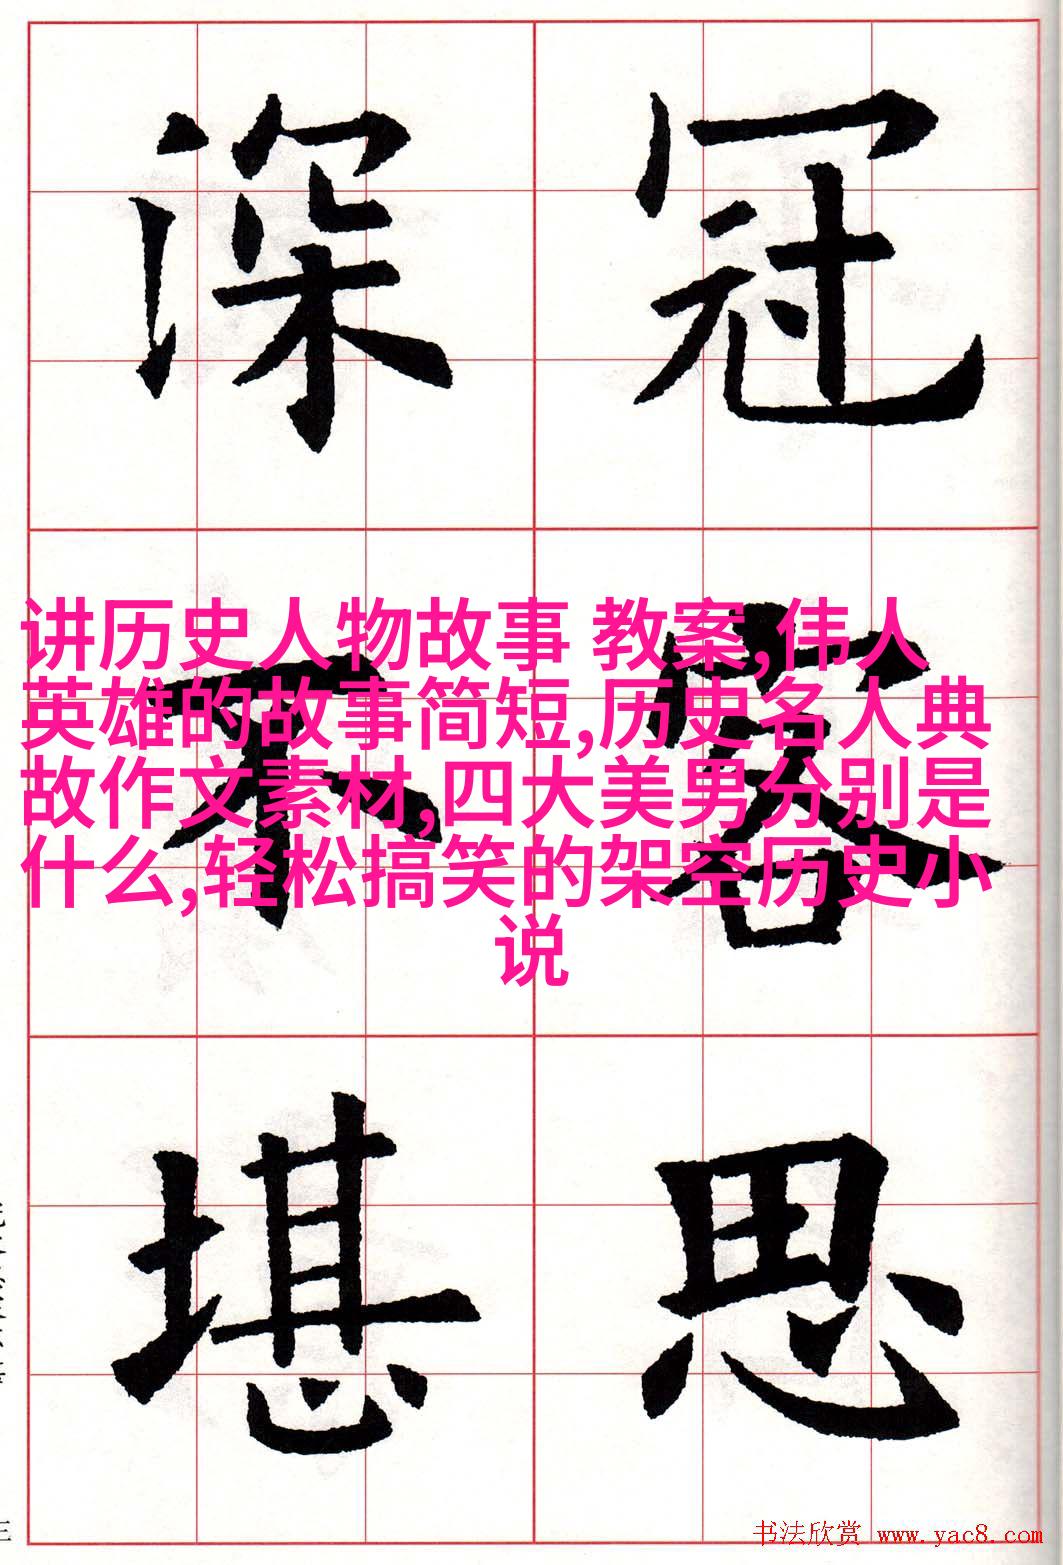 深 冠
讲历史人物故事 教案,伟人
英雄的故事简短,历史名人典
故作文素材,四大美男分别是
什么,轻松搞笑的架空历史小
说
不 容
堪 思
书法欣赏 www.yac8.com